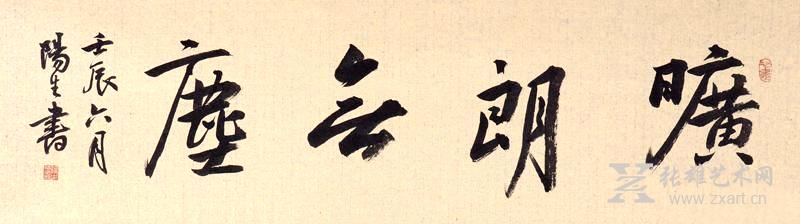 曠朗无塵
壬辰六月
陽生書
张雄艺术网
www.zxart.cn